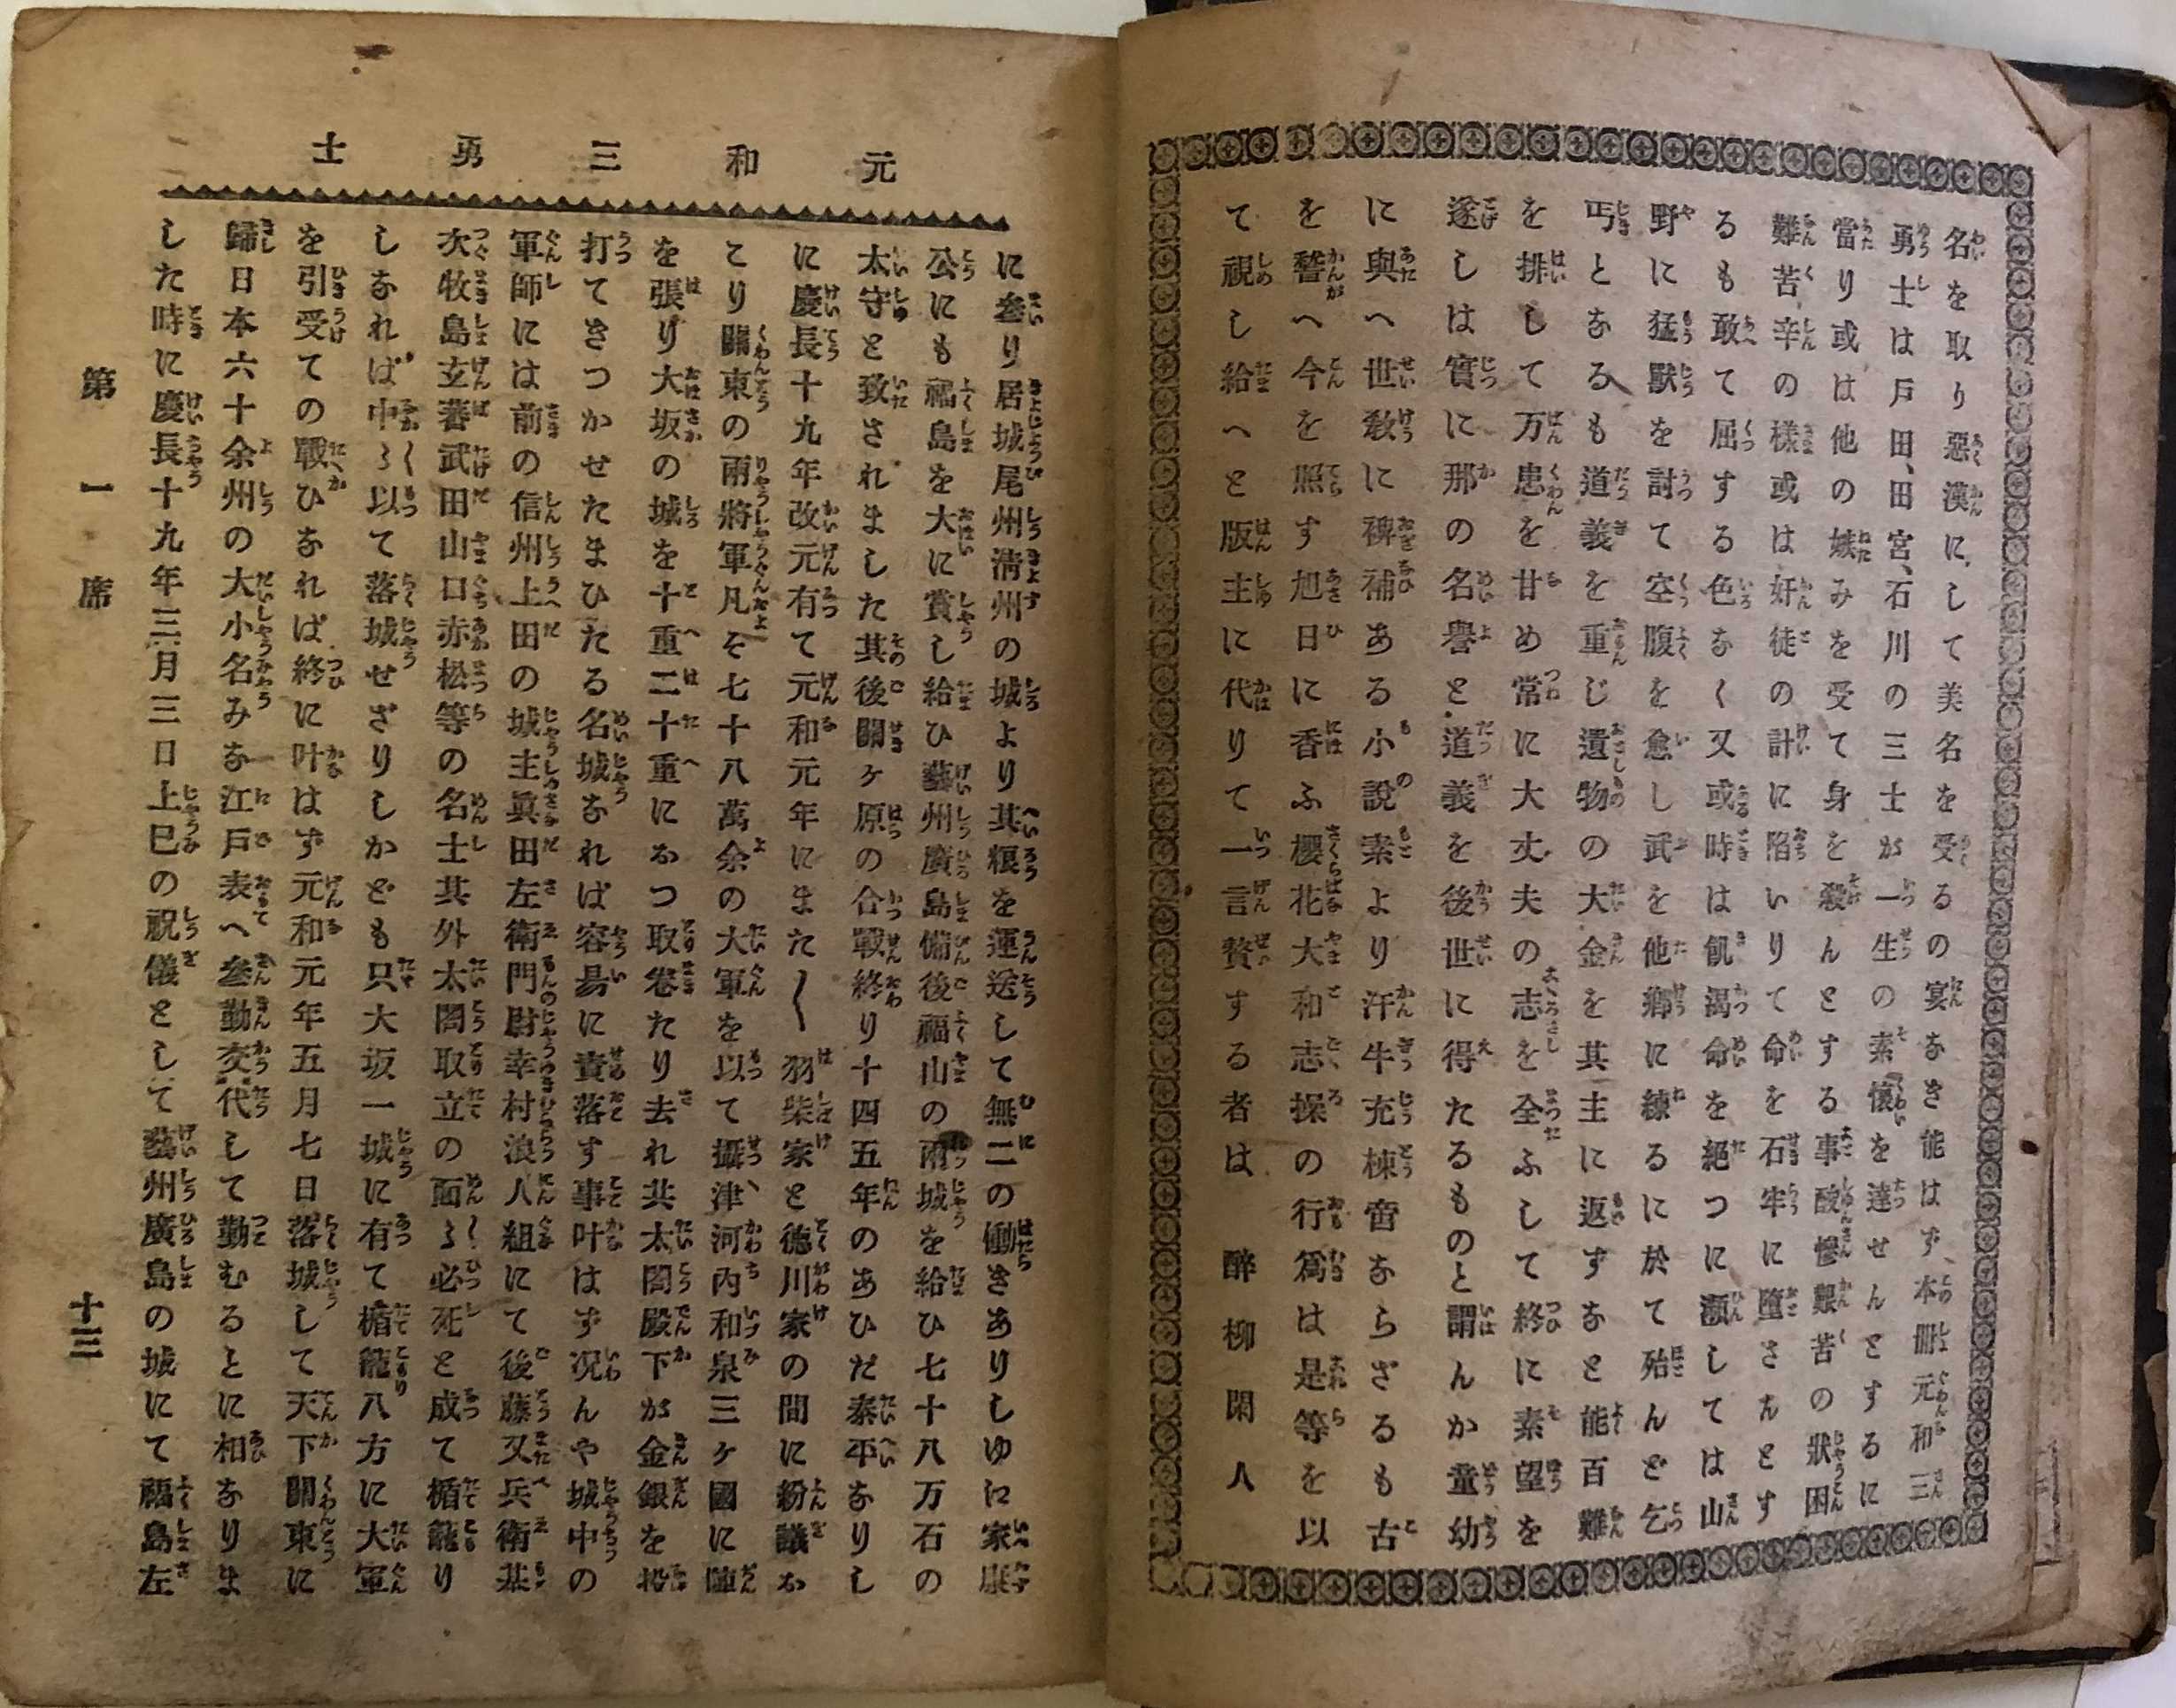 名を取り惡漢にして美名を受るの宴なき能はず本冊元和三
勇士は戸田、田宮、石川の三士が一生の素懷を達せんとするに
當り或は他の嫉みを受て身を殺んとする事酸慘艱苦の狀困
難苦辛の樣或は奸徒の計に陷いりて命を石牢に墮さんとす
るも敢て屈する色なく又或時は飢渴命を絕つに瀕しては山
野に猛獸を討て空腹を愈し武を他鄕に練るに於て殆んど乞
丐となるも道義を重じ遺物の大金を其主に返すなと能百難
を排して万患を甘め常に大丈夫の志を全ふして終に素望を
遂しは實に那の名譽と道義を後世に得たるものと謂んか童幼
に與へ世敎に裨補ある小說素より汗牛充棟啻ならざるも古
を稽へ今を照す旭日に香ふ櫻花大和志操の行爲は是等を以
て視し給へと版主に代りて一言贅する者は
醉柳閑人
元和三勇士
に叄り居城尾州淸州の城より其粮を運送して無二の働きありしゆに家康
公にも福島を大に賞し給ひ藝州廣島備後福山の兩城を給ひ七十八万石の
太守と致されました其後關ヶ原の合戰終り十四五年のあひだ泰平なりし
に慶長十九年改元有て元和元年にまた〱羽柴家と德川家の間に紛議お
こり關東の兩將軍凡そ七十八萬余の大軍を以て攝津、河內和泉三ヶ國に陣
を張り大坂の城を十重二十重におつ取卷たり去れ共太閤殿下が金銀を抛
打てきつかせたまひたる名城なれば容易に責落す事叶はず况んや城中の
軍師には前の信州上田の城主眞田左衛門尉幸村浪人組にて後藤又兵衛基
次牧島玄蕃武田山口赤松等の名士其外太閤取立の面〻必死と成て楯籠り
しなれば中〻以て落城せざりしかども只大坂一城に有て楯籠八方に大軍
を引受ての戰ひなれば終に叶はず元和元年五月七日落城して天下關東に
歸日本六十余州の大小名みな江戶表へ叄勤交代して勤むるとに相なりま
した時に慶長十九年三月三日上巳の祝儀として藝州廣島の城にて福島左
第一席
十三